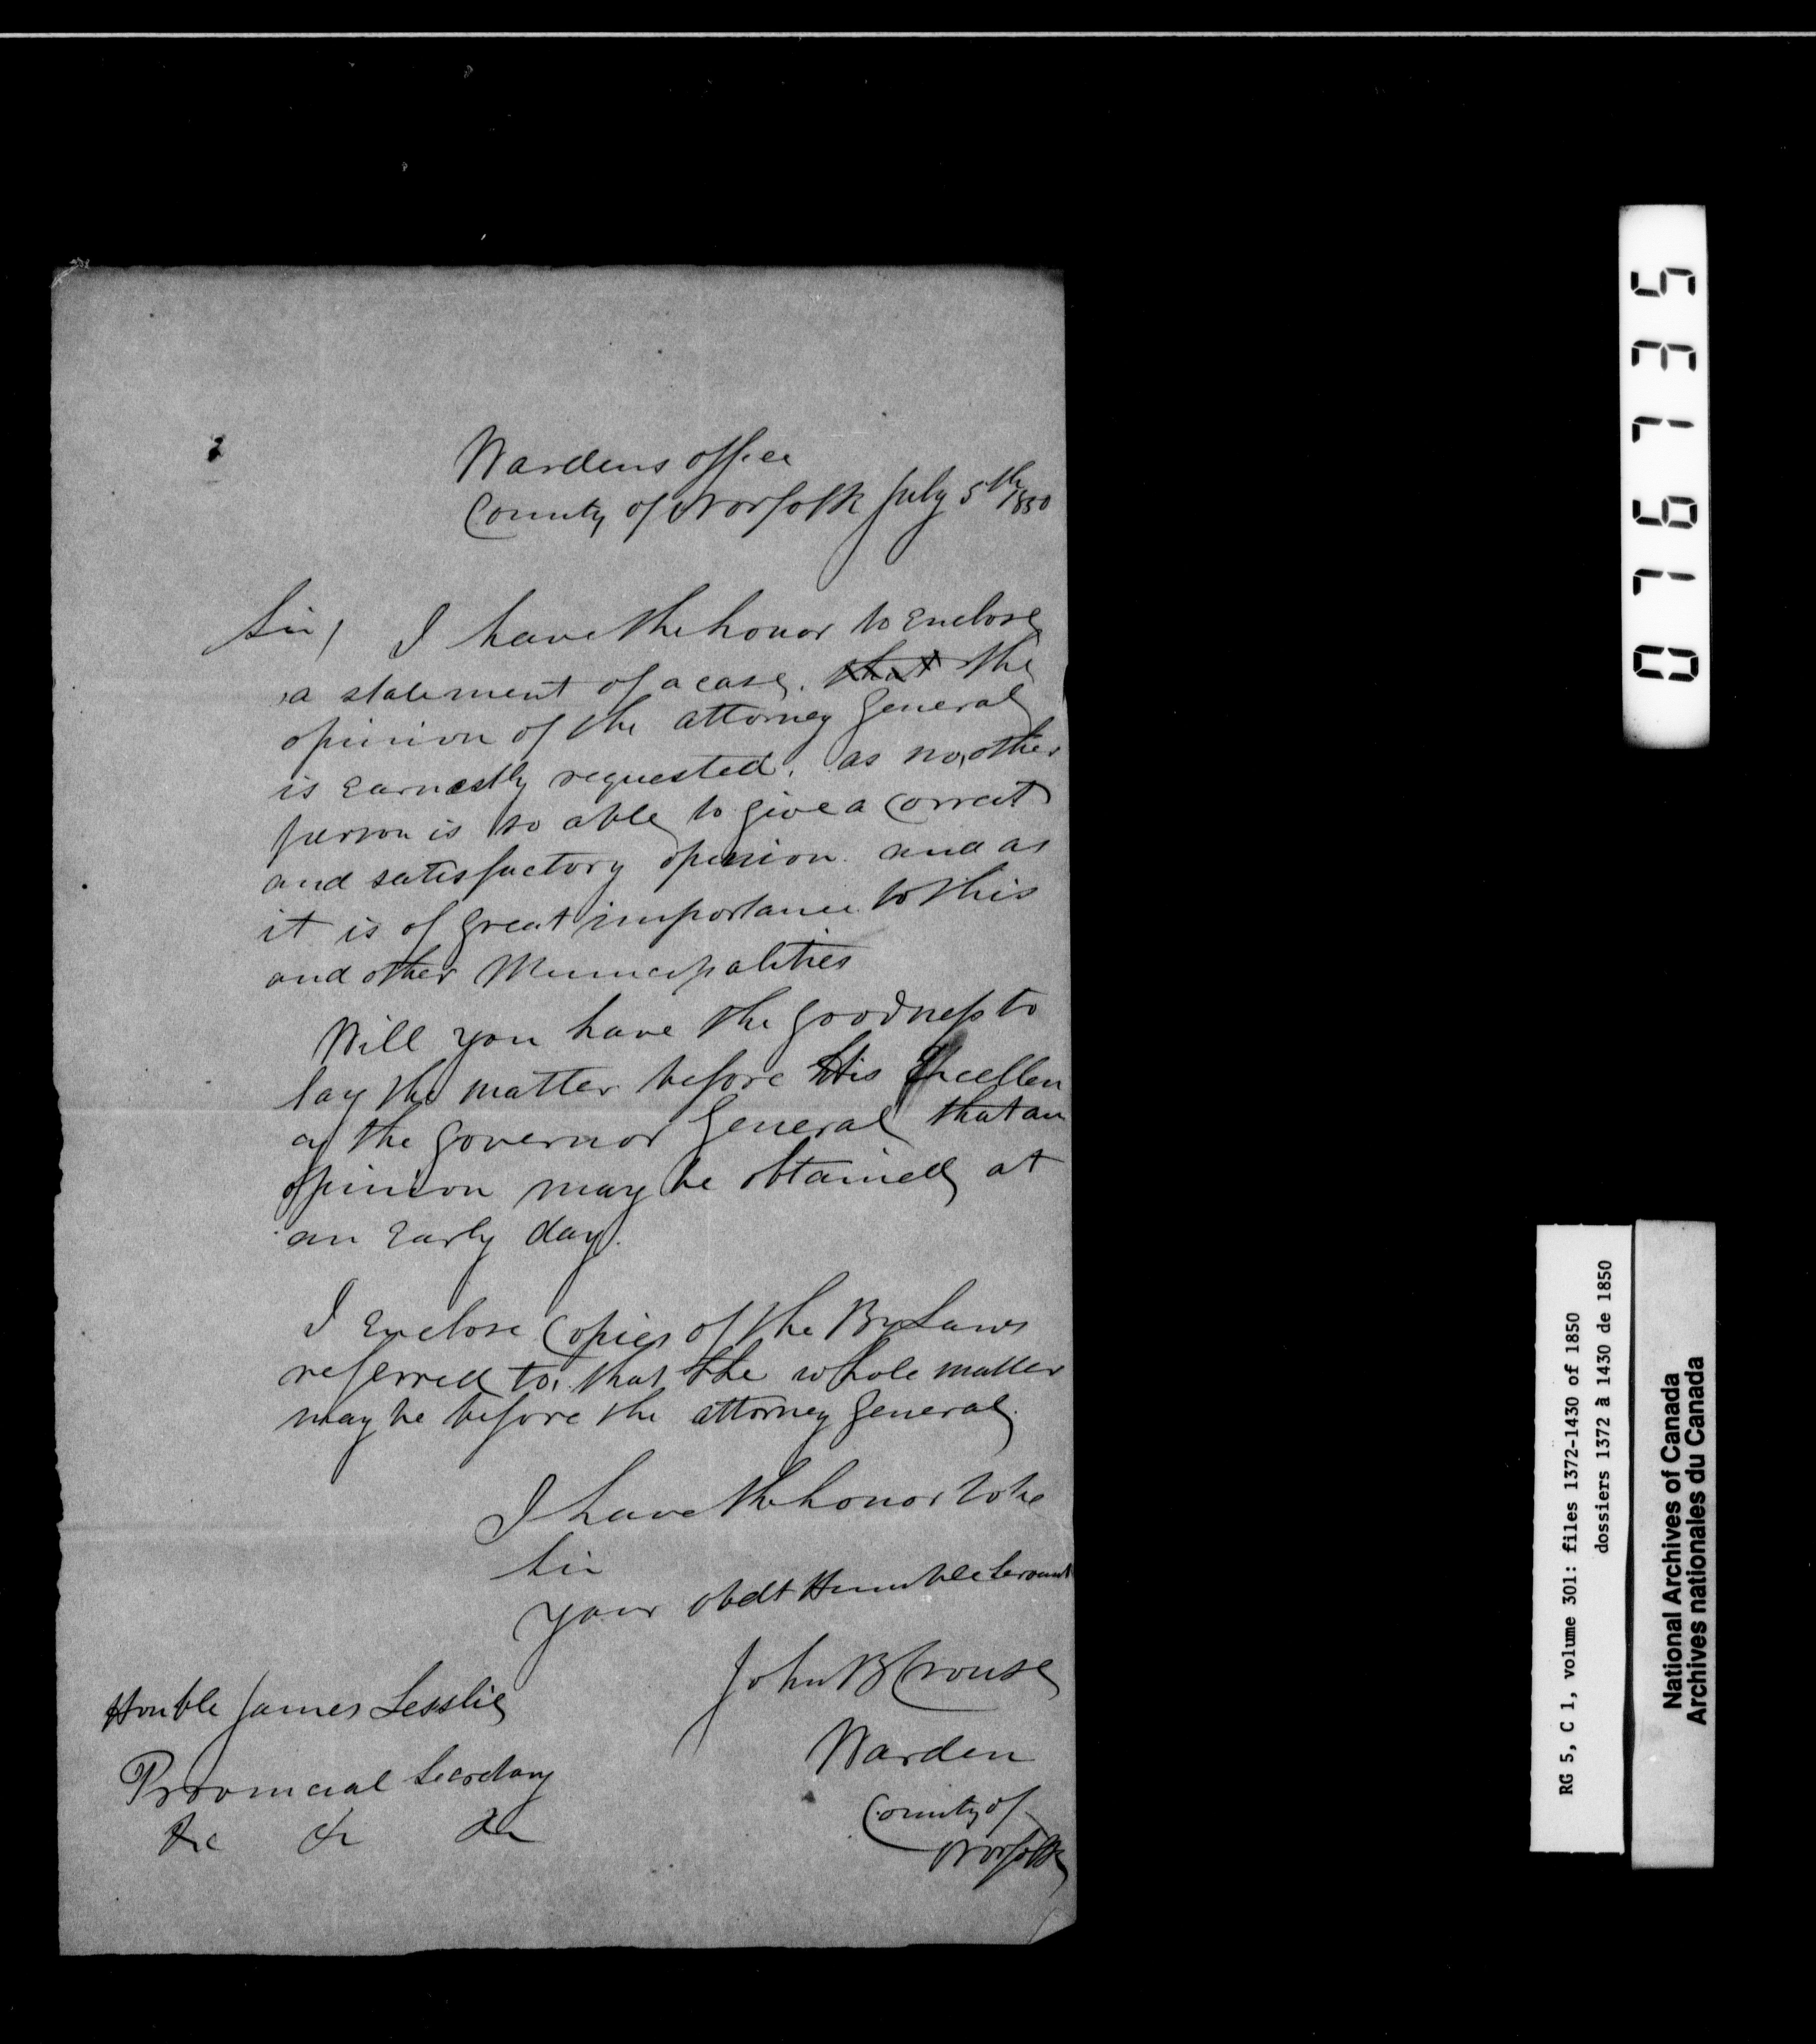 Wardens office
County of Norfolk July 5th 1850
Sir, I have the honor to Enclose
a statement of a case. that the
opinion of the attorney General
is Earnestly requested. as no other
person is so able to give a Correct
and satisfactory opinion. and as
it is of great importance to this
and other Municipalities
Will you have the goodness to
lay the matter before His Excellen
cy the Governor General that an
opinion may be obtained at
an Early day.
I Enclose Copies of the By Laws
referred to, that the whole matter
may be before the attorney General.
I have the honor to be
Sir
your obdt Humble Servant
John B Crouse
Warden
County of
Norfolk
Honble James Lesslie
Provincial Secretary
&c &c &c
076735
RG 5, C 1, volume 301: files 1372-1430 of 1850
dossiers 1372 à 1430 de 1850
National Archives of Canada
Archives nationales du Canada